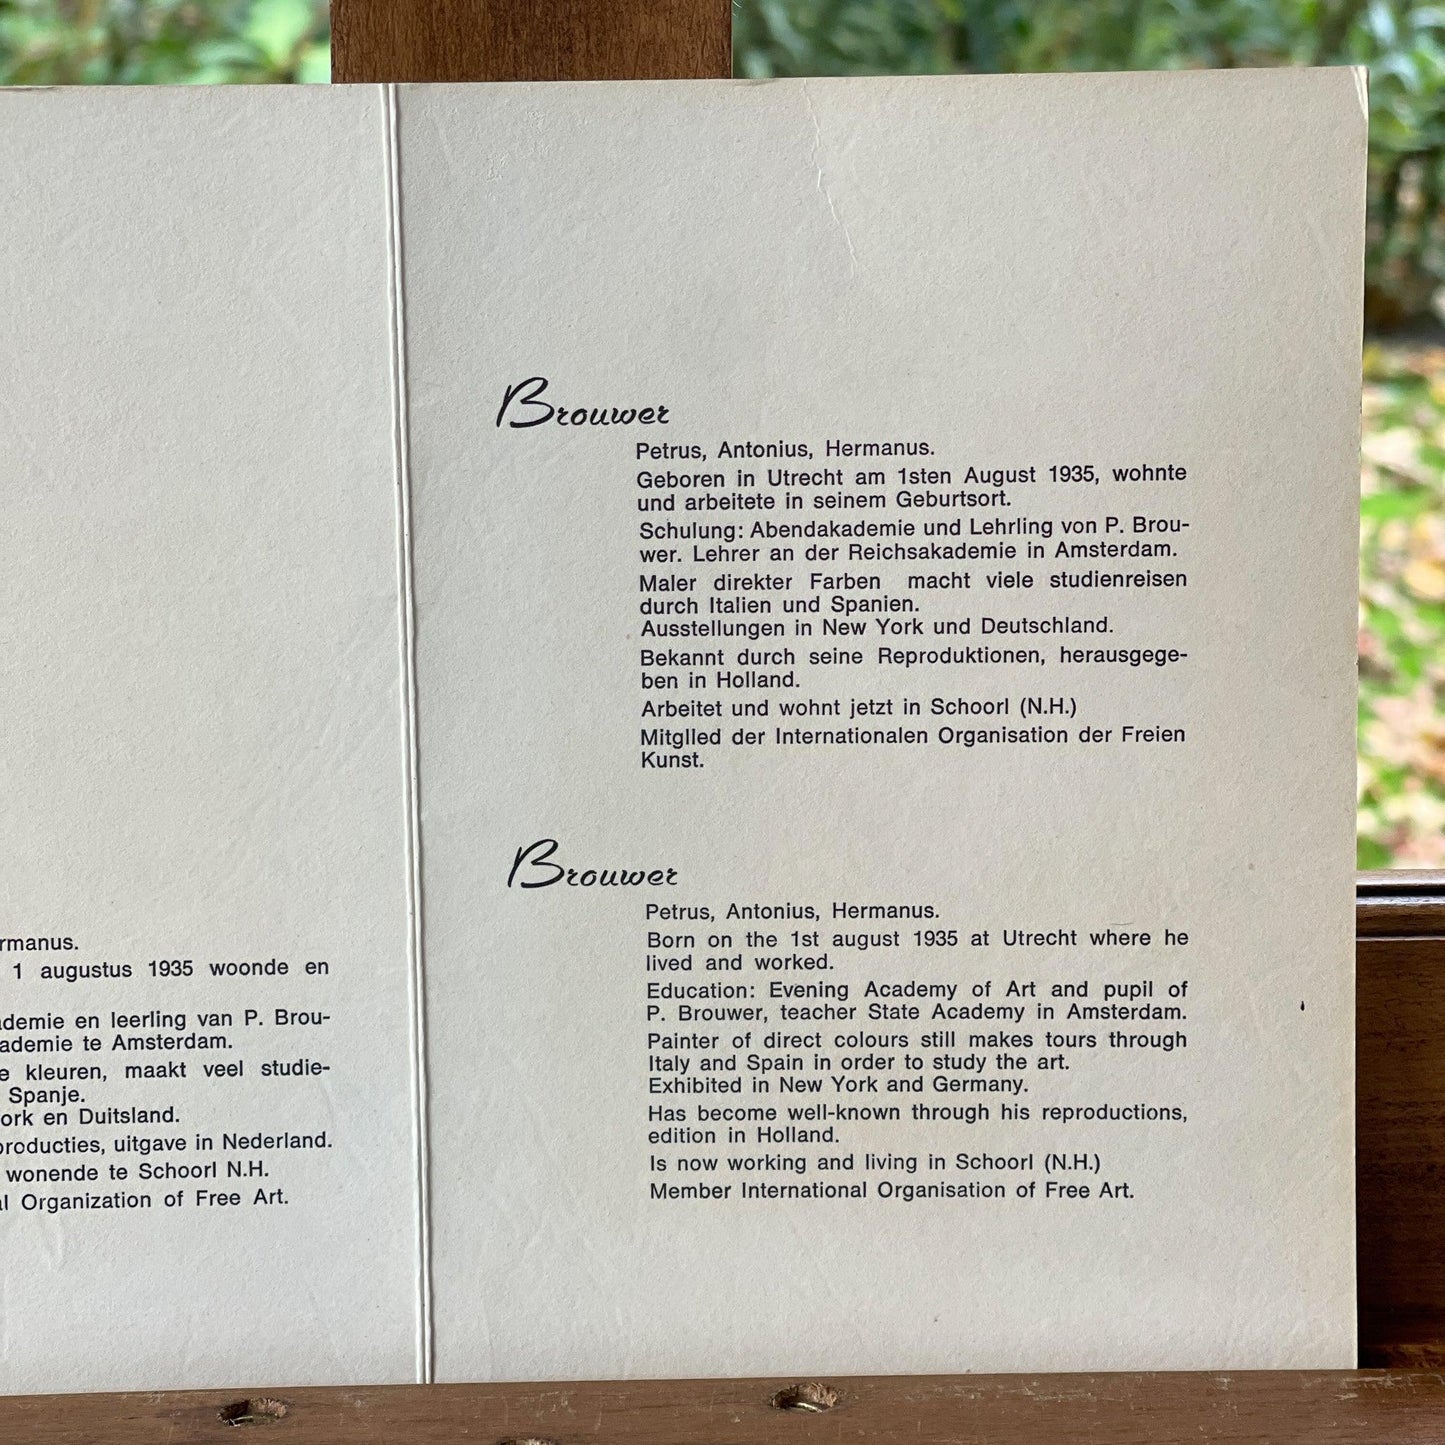 rmanus.
1 augustus 1935 woonde en
ademie en leerling van P. Brou-
ademie te Amsterdam.
e kleuren, maakt veel studie-
Spanje.
ork en Duitsland.
producties, uitgave in Nederland.
wonende te Schoorl N.H.
al Organization of Free Art.
Brouwer
Petrus, Antonius, Hermanus.
Geboren in Utrecht am 1sten August 1935, wohnte
und arbeitete in seinem Geburtsort.
Schulung: Abendakademie und Lehrling von P. Brou-
wer. Lehrer an der Reichsakademie in Amsterdam.
Maler direkter Farben macht viele studienreisen
durch Italien und Spanien.
Ausstellungen in New York und Deutschland.
Bekannt durch seine Reproduktionen, herausgege-
ben in Holland.
Arbeitet und wohnt jetzt in Schoorl (N.H.)
Mitglled der Internationalen Organisation der Freien
Kunst.
Brouwer
Petrus, Antonius, Hermanus.
Born on the 1st august 1935 at Utrecht where he
lived and worked.
Education: Evening Academy of Art and pupil of
P. Brouwer, teacher State Academy in Amsterdam.
Painter of direct colours still makes tours through
Italy and Spain in order to study the art.
Exhibited in New York and Germany.
Has become well-known through his reproductions,
edition in Holland.
Is now working and living in Schoorl (N.H.)
Member International Organisation of Free Art.